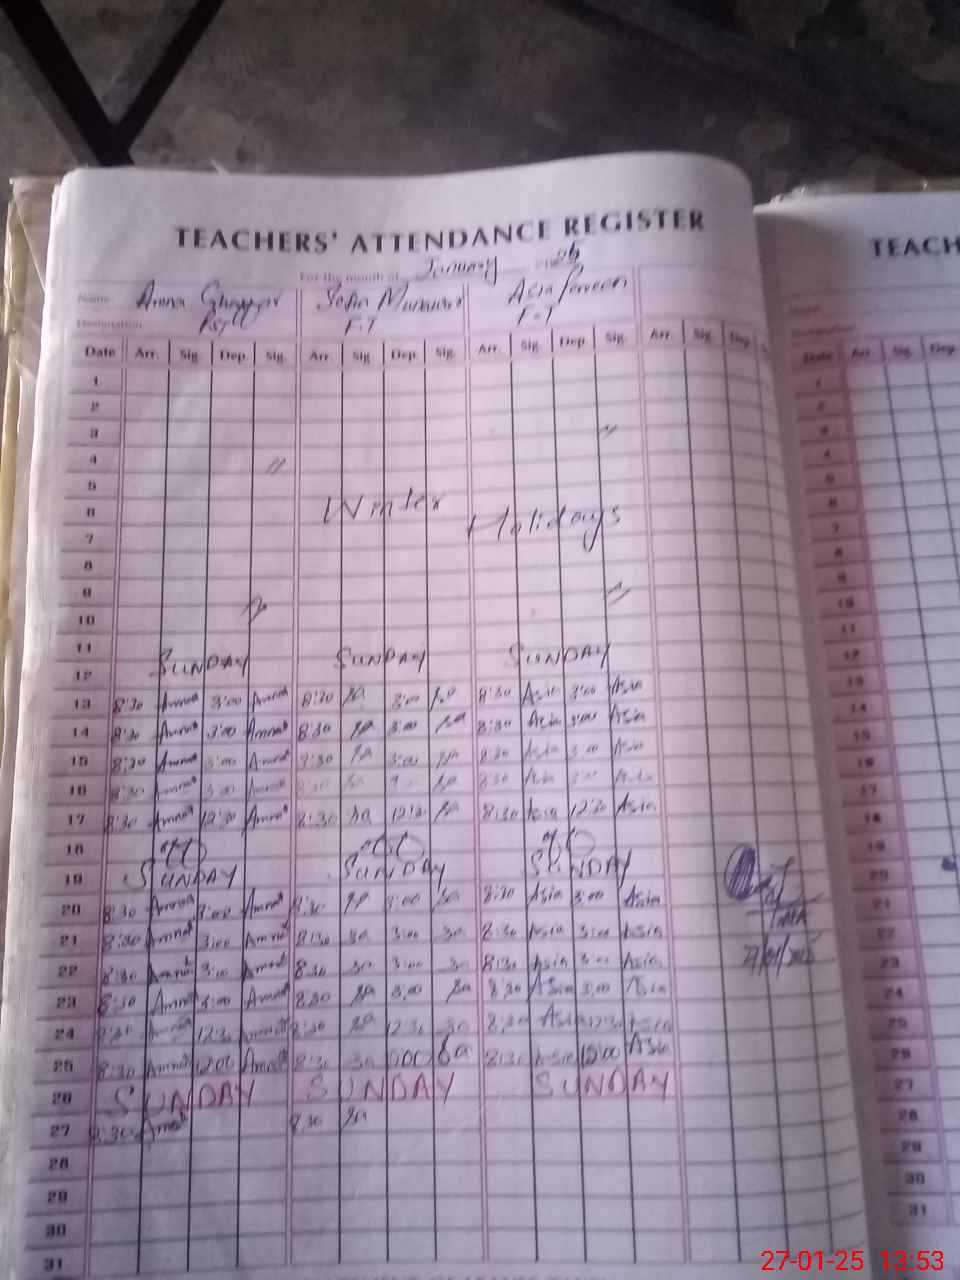 TEACHERS' ATTENDANCE REGISTER
TEACH
For the month of January
Name Amna Asia Parveen
Designation PST F.T F.T
Date Arr. Sig. Dep. Sig. Arr. Sig. Dep. Sig. Arr. Sig. Dep. Sig. Arr. Sig. Dep. S
Date Arr. Sig. Dep.
1
2
3 "
4 "
5
6 Winter Holidays
7
8
9 "
10
11
12 SUNDAY SUNDAY SUNDAY
13 8:30 Amna 3:00 Amna 8:30 3:00 8:30 Asia 3:00 Asia
14 8:30 Amna 3:00 Amna 8:30 3:00 8:30 Asia 3:00 Asia
15 8:30 Amna 3:00 Amna 8:30 3:00 8:30 Asia 3:00 Asia
16 8:30 Amna 3:00 Amna 8:30 Asia 3:00 Asia
17 8:30 Amna 12:30 Amna 8:30 12:30 8:30 Asia 12:30 Asia
18 off off off
19 SUNDAY SUNDAY SUNDAY
20 8:30 Amna 3:00 Amna 8:30 3:00 8:30 Asia 3:00 Asia
21 8:30 Amna 3:00 Amna 8:30 3:00 8:30 Asia 3:00 Asia
22 8:30 Amna 3:00 Amna 8:30 3:00 8:30 Asia 3:00 Asia
23 8:30 Amna 3:00 Amna 8:30 3:00 8:30 Asia 3:00 Asia
24 8:30 Amna 12:30 Amna 8:30 12:30 8:30 Asia 12:30 Asia
25 8:30 Amna 12:00 Amna 8:30 8:30 Asia 12:00 Asia
26 SUNDAY SUNDAY SUNDAY
27 8:30 Amna 8:30
28
29
30
31
MEA
27/01/2025
1
2
3
4
5
6
7
8
9
10
11
12
13
14
15
16
17
18
19
20
21
22
23
24
25
26
27
28
29
30
31
27-01-25 13:53